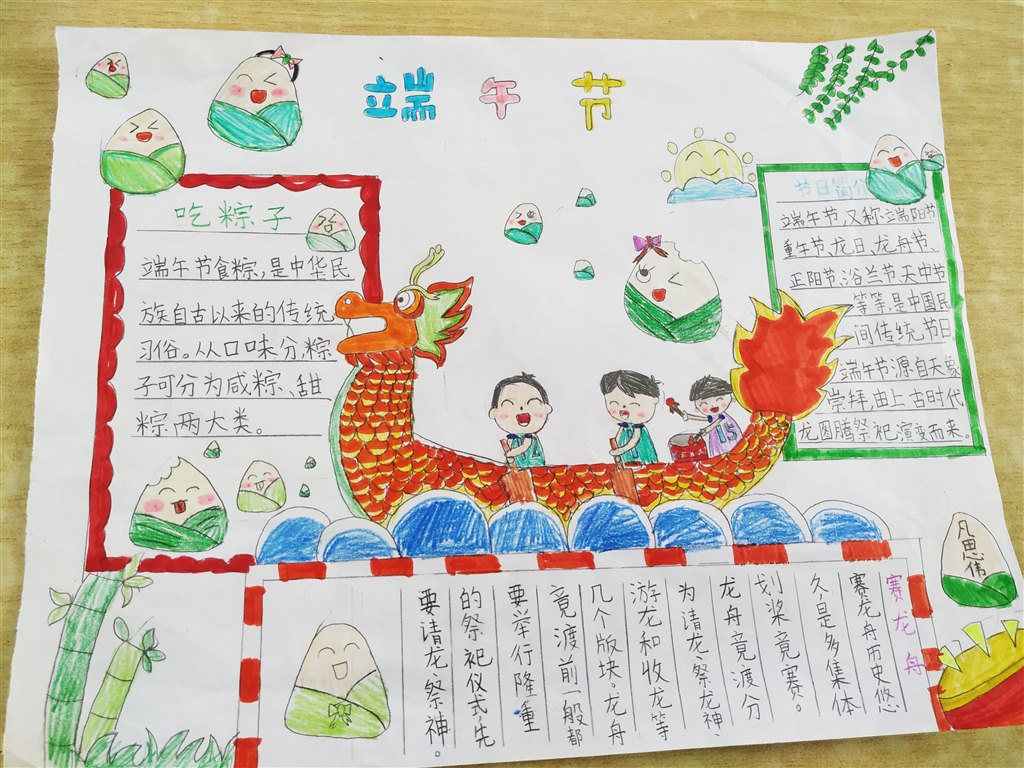 端午节
吃粽子
端午节食粽,是中华民
族自古以来的传统
习俗。从口味分,粽
子可分为咸粽、甜
粽,两大类。
节日简介
端午节,又称端阳节
重午节、龙日、龙舟节、
正阳节、浴兰节、天中节
等等,是中国民
间传统节日
端午节源自天象
崇拜,由上古时代
龙图腾祭祀演变而来。
赛龙舟
赛龙舟历史悠
久,是多集体
划桨竞赛。
龙舟竞渡分
为请龙、祭龙神、
游龙和收龙等
几个版块。龙舟
竞渡前一般都
要举行隆重
的祭祀仪式,先
要请龙、祭神。
思伟